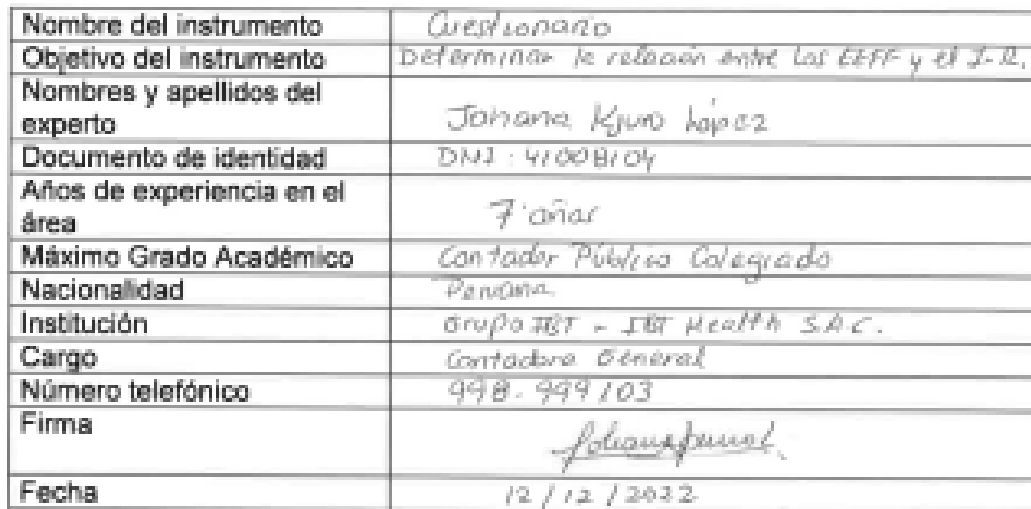 Nombre del instrumento Cuestionario
Objetivo del instrumento Determinar la relación entre los EEFF y el I.R.
Nombres y apellidos del
experto Johana Kjuro López
Documento de identidad DNI: 41008104
Años de experiencia en el
área 7 años
Máximo Grado Académico Contador Público Colegiado
Nacionalidad Peruana
Institución Grupo IBT - IBT Health S.A.C.
Cargo Contadora General
Número telefónico 998-999103
Firma
Fecha 12/12/2022